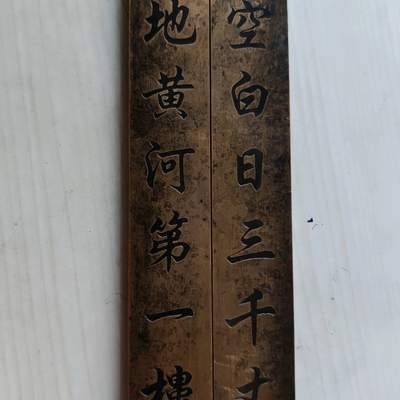 空白日三千丈
地黄河第一樓